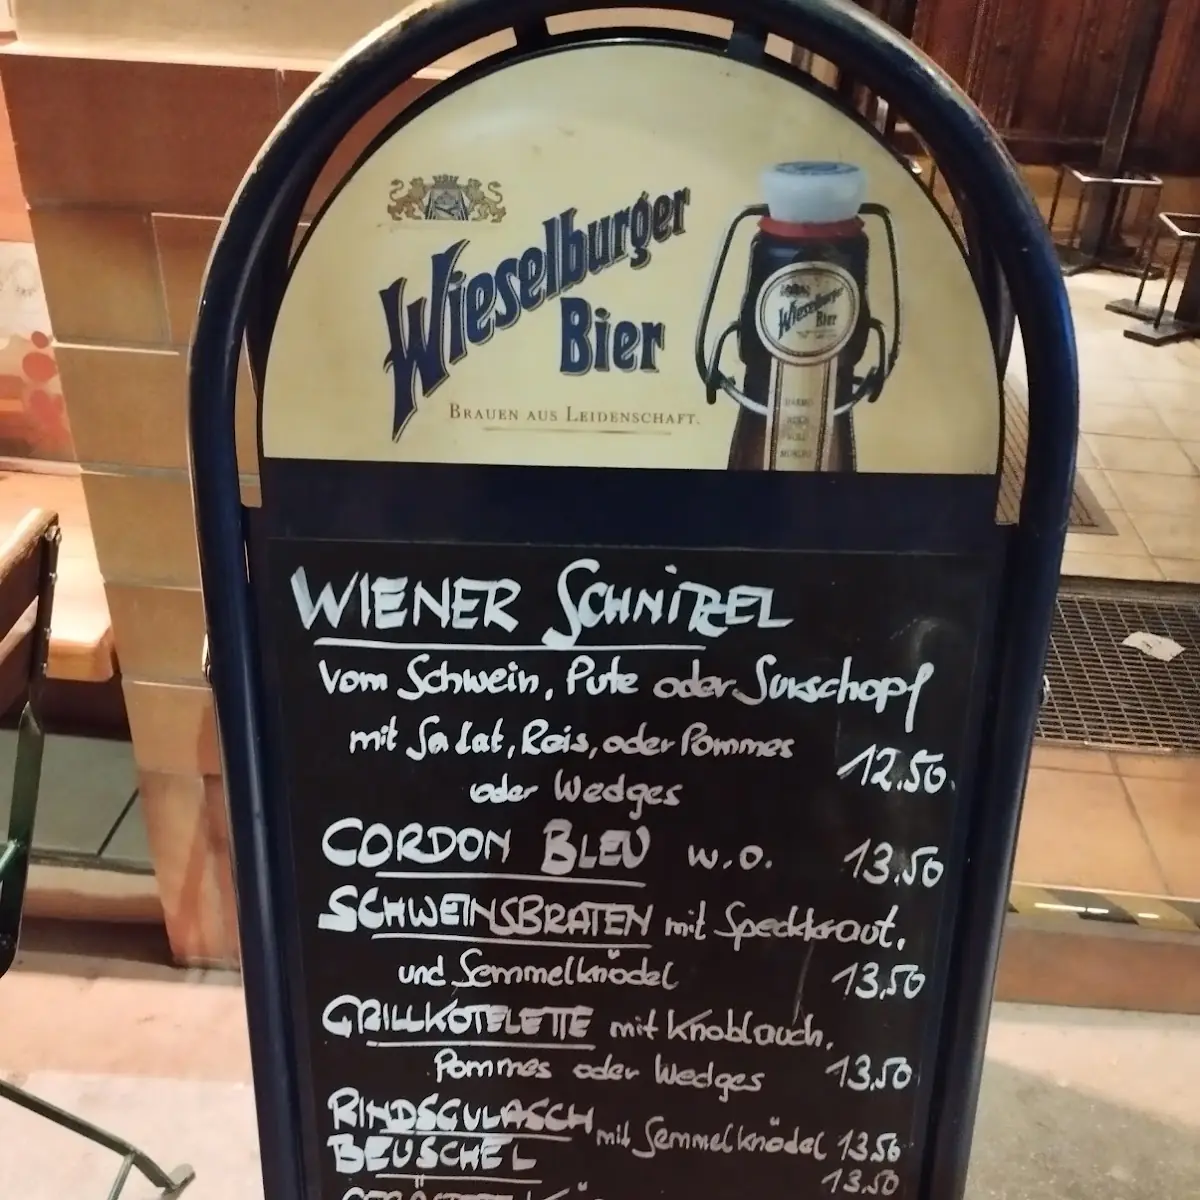 Wieselburger
Bier
BRAUEN AUS LEIDENSCHAFT.
Wieselburger
Bier
WIENER SCHNITZEL
vom Schwein, Pute oder Surschopf
mit Salat, Reis, oder Pommes 12.50.
oder Wedges
CORDON BLEU w.o. 13,50
SCHWEINSBRATEN mit Speckkraut,
und Semmelknödel 13,50
GRILLKOTELETTE mit Knoblauch,
Pommes oder Wedges 13,50
RINDSGULASCH mit Semmelknödel 13,50
BEUSCHEL 13,50